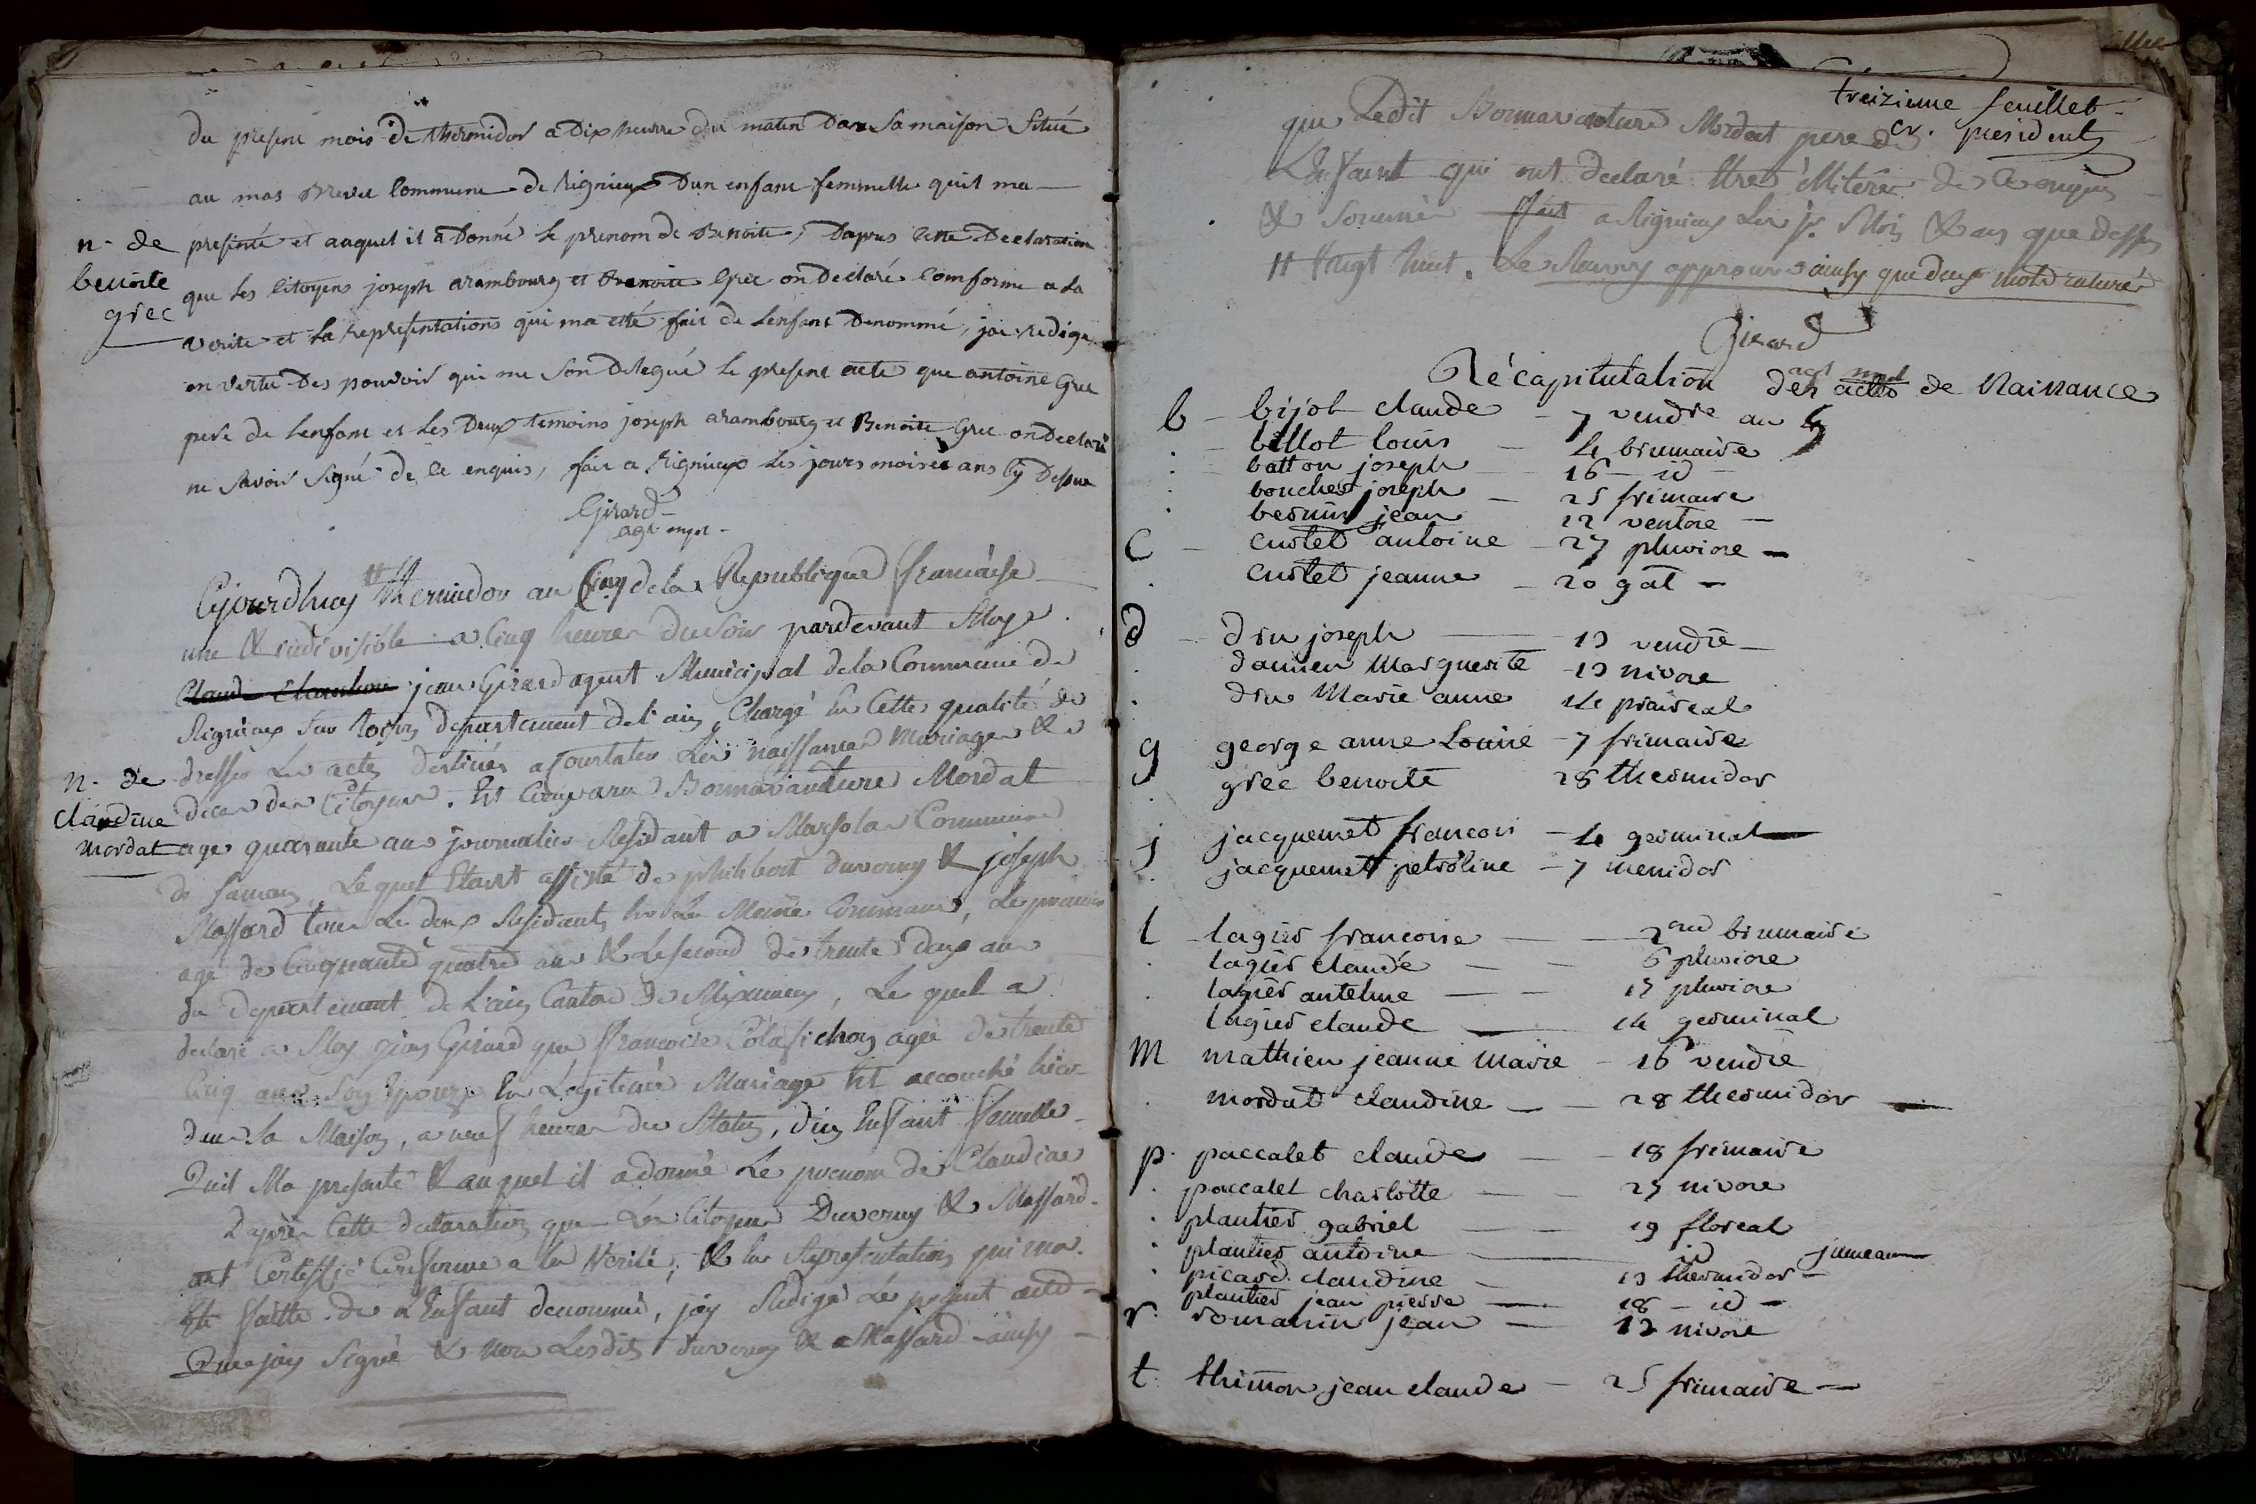 du present mois de thermidor a Dix heure du matin Dans Sa maison Située
au mas Commune de Rignieux Dun enfant femmelle quil ma
n. de
benoite
grec
presenté et auquel il a Donné le prenom de Benoite, Dapres cette Declaration
que les Citoyens joseph arambourg et Benoite Grec on Declaré Comforme a la
verite et la representations qui ma etté fait de lenfant Denommé, jai redigé
en vertu Des pouvoir qui me Son Delegué le present acte que antoine Grec
pere de lenfant et les Deux temoins joseph arambourg et Benoite Grec on Declaré
ne Savoir Signé de ce enquis, fait a Rignieux les jours mois et ans cy Dessus
Girard
agt mpl
Cejourdhuy # thermidor an Cinq de la Republique francaise
une & indivisible a Cinq heures du Soir pardevant Moy
jean Girard agent Municipal de la Commune de
Rignieux departement de l'ain, Chargé En Cette qualité de
n. de
claudine
mordat
dresser Les actes destinés a Constater Les naissances Mariages &
deces des Citoyens. Est Comparu Bonnavanture Mordat
age quarante ans journalier Residant a Marsolas Commune
de Lequel Etant assisté de philibert duverny & joseph
Massard tous Les deux Residants La Meme Commune, Le premier
age de Cinquante quatre ans & Le second de trente deux ans
du departement de L'ain Canton de Meximieux, Le quel a
declaré a Moy jean Girard que francoise agée de trente
Cinq ans Son Epouse En Legitime Mariage Est accouché hier
dans Sa Maison, a neuf heures du Matin, d'un Enfant femelle
Quil Ma presenté & auquel il a donné Le prenom de Claudine
D'apres Cette declaration que Les Citoyens Duverny & Massard
ont Certiffié Conforme a la Verité, & la Representation qui ma
Eté faitte de L'Enfant denommé, jay Redigé Le present acte
Que jay Signé & non Lesdits duverny & Massard ainsy
treizieme feuillet
cv. president
que Ledit Bonnavanture Mordat pere de
L'Enfant qui ont declaré Etre illiteré de Ce enquis
& Sommé fait a Rignieux Les jr. Mois & an que dessus
# Vingt huit. Le Renvoy approuvé ainsy que deux mots raturés
Girard
agt mpl
Récapitulation des actes de Naissances
b - bijot claude - 7 vendre an 5
- billot louis - 4 brumaire
batton joseph - 16 - id
bouchet joseph - 25 frimaire
bernin jean 12 ventose -
C - custet antoine - 27 pluviose -
custet jeanne - 20 gal -
d - dru joseph - 13 vendre -
damien Marguerite - 13 nivose
dru Marie anne 14 prairéal
g george anne Louise - 7 frimaire
grec benoite 28 thermidor
j jacquemet francois - 4 germinal
jacquemet petroline - 7 mesidor
l - lagier francoise - 2ond brumaire
lagier claude - 6 pluviose
lagier antelme - 17 pluviose
lagier claude - 14 germinal
M mathieu jeanne Marie - 16 vendre
mordat claudine - 28 thermidor
p. paccalet claude - 18 frimaire
paccalet charlotte - 27 nivose
plantier gabriel - 19 floreal
plantier antoine - id jumeaux
picard claudine - 13 thermidor
plantier jean pierre - 18 - id -
r. romanin jean - 12 nivose
t. thimon jean claude - 25 frimaire -